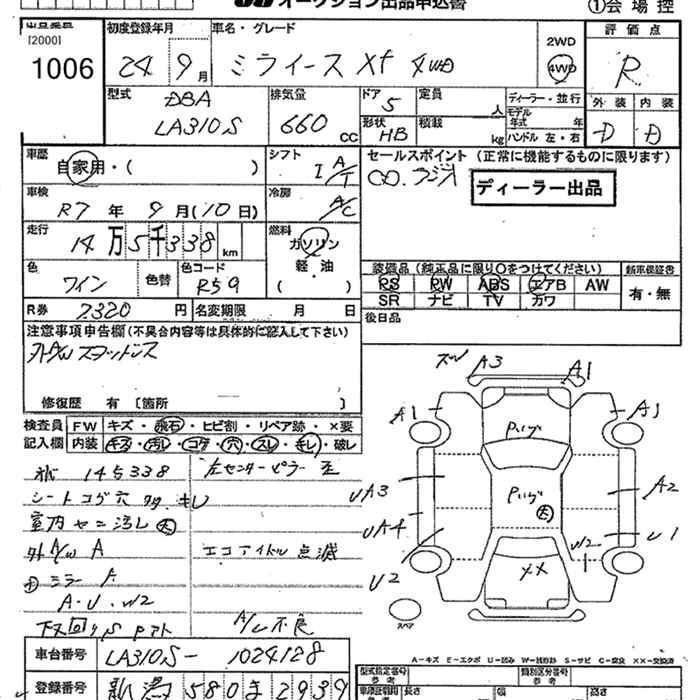 オークション出品申込書
①会場控
[2000]
1006
初度登録年月
24 9月
車名・グレード
ミライース Xf 4WD
2WD
4WD
評価点
R
外装 内装
D D
型式
DBA
LA310S
排気量
660 cc
ドア 5
定員 人
形状 HB
積載 kg
ディーラー・並行
モデル年式 年
ハンドル 左・右
車歴
自家用・( )
シフト
I A/T
セールスポイント (正常に機能するものに限ります)
CD.ラジオ
ディーラー出品
車検
R7年 9月(10日)
冷房
A/C
走行
14万5千338km
燃料
ガソリン
軽・油
( )
色
ワイン
色替
色コード
R59
装備品(純正品に限り○をつけてください)
RS RW ABS エアB AW
SR ナビ TV カワ
新車保証書
有・無
R券 7320円
名変期限 月 日
後日品
注意事項申告欄(不具合内容等は具体的に記入して下さい)
外A/W スタッドレス
修復歴 有 〔箇所 〕
検査員記入欄
FW キズ・飛石・ヒビ割・リペア跡・×要
内装 キズ・汚レ・コゲ・穴・スレ・キレ・破レ
145338
左センターピラー
シートコゲ穴 キレ
室内 汚レ 大
外A/W A
エコアイドル点滅
ミラー A
A・U・W2
下回り S
A/C不良
A3 A1
A1 A1
UA3 A2
UA4 U1
U2 W2
××
大
スペア
A-キズ E-エクボ U-凹み W-補修跡 S-サビ C-腐食 ××-交換済
車台番号
LA310S-1024128
登録番号
新潟 580ま2939
型式指定番号
参考
類別区分番号
参考
長さ
幅
高さ